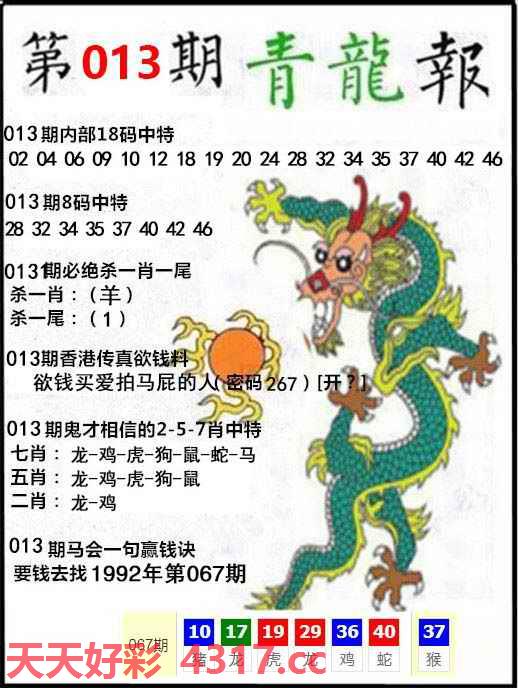 第013期青龍報
013期内部18码中特
02 04 06 09 10 12 18 19 20 24 28 32 34 35 37 40 42 46
013期8码中特
28 32 34 35 37 40 42 46
013期必绝杀一肖一尾
杀一肖：（羊）
杀一尾：（1）
013期香港传真欲钱料
欲钱买爱拍马屁的人（密码267）[开？]
013期鬼才相信的2-5-7肖中特
七肖：龙-鸡-虎-狗-鼠-蛇-马
五肖：龙-鸡-虎-狗-鼠
二肖：龙-鸡
013期马会一句赢钱诀
要钱去找1992年第067期
067期 10 17 19 29 36 40 37
猪 龙 虎 龙 鸡 蛇 猴
天天好彩 4317.cc